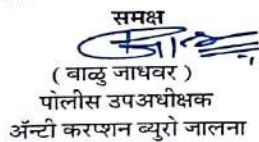 समक्ष
( बाळु जाधवर )
पोलीस उपअधीक्षक
ॲन्टी करप्शन ब्युरो जालना